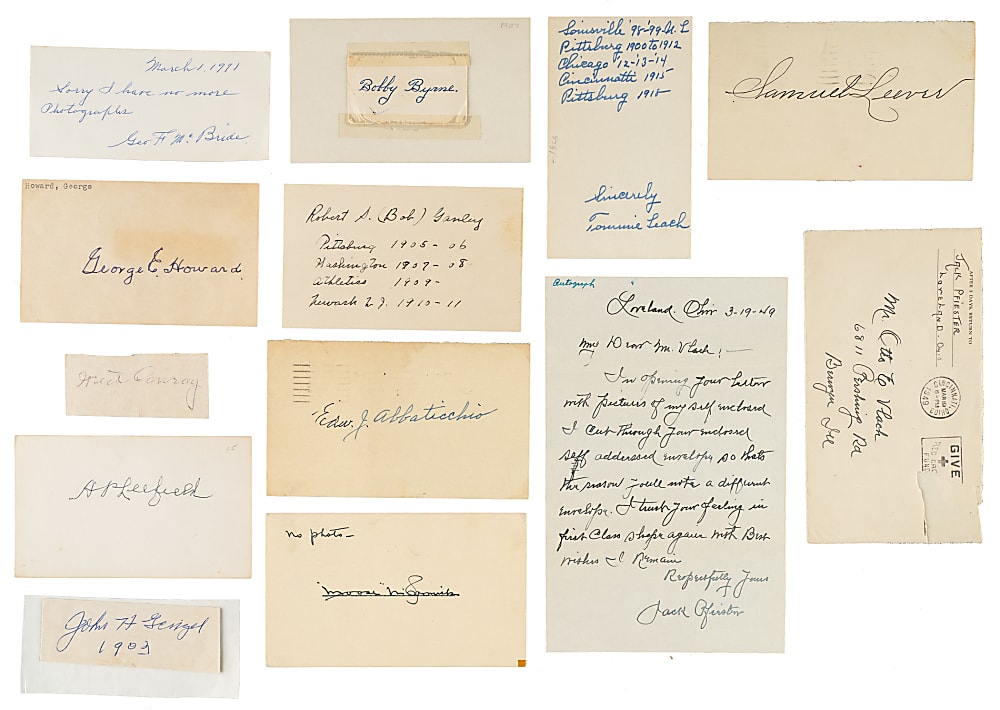 March 1, 1971
Sorry I have no more
Photographs
Geo F Mc Bride
1907
Bobby Byrne.
Louisville '98-'99-N. L
Pittsburg 1900 to 1912
Chicago '12-13-14
Cincinnatti 1915
Pittsburg 1918
Sincerely
Tommie Leach
Samuel Leever
Howard, George
George E. Howard.
Robert S. (Bob) Ganley
Pittsburg 1905-06
Washington 1907-08-
Athletics 1909-
Newark N.J. 1910-11
AFTER 5 DAYS RETURN TO
Jack Pfiester
Loveland - Ohio
Mr. Otto E Vlach
6811 Pershing Rd
Berwyn Ill
CINCINNATI
MAR 19
1949
OHIO
GIVE
RED
FUND
Autograph
Loveland. Ohio 3-19-49
My Dear Mr. Vlach! -
In opening your letter
with pictures of my self enclosed
I cut through your enclosed
self addressed envelope so thats
the reason youll note a different
envelope. I trust your feeling in
first class shape again with Best
wishes I Remain
Respectfully Yours
Jack Pfiester
Conroy
Edw. J. Abbaticchio
A P Leifield
no photo-
"Moose" McCormick
John H Gengel
1903